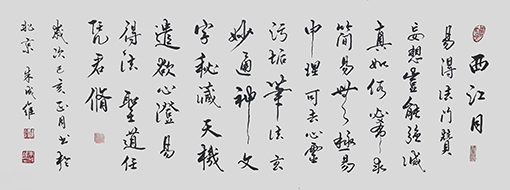 西江月
易得法门赞
妄想岂能强灭
真如何必希求
简易无极易
中理可去心灵
污垢笔法玄
妙通神文
字秘藏天机
遣欲心澄易
得法圣道任
凭君修
岁次己亥正月书于
北京朱成维